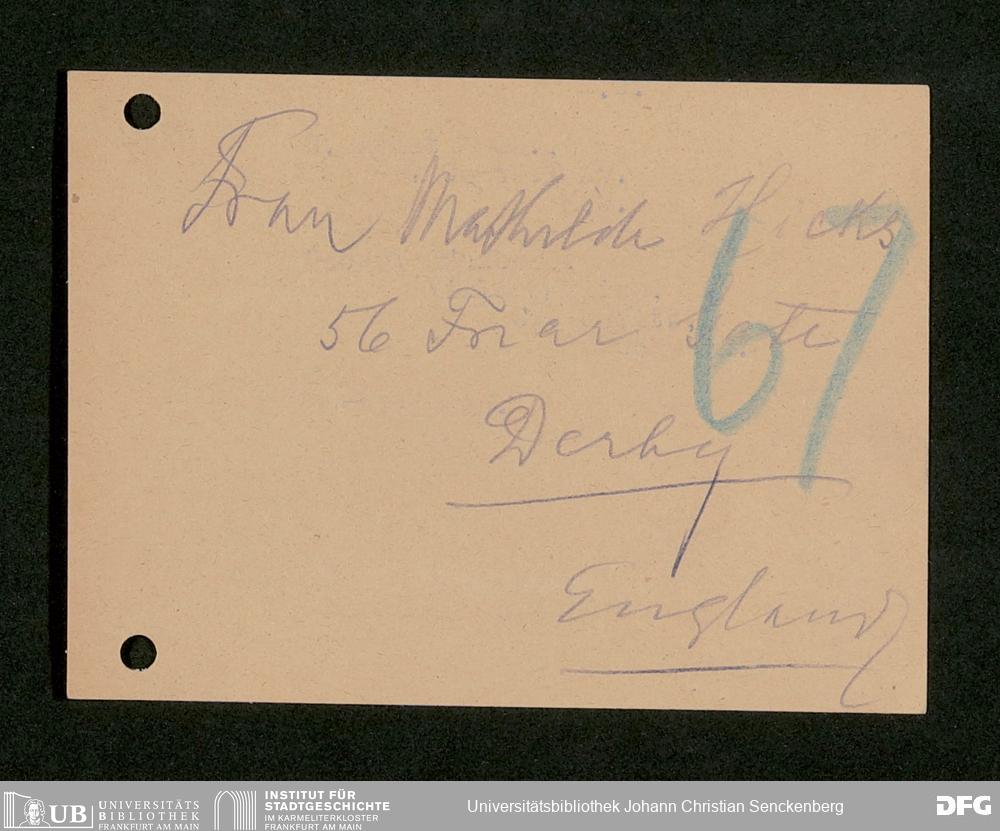 Frau Mathilde Hicks
67
56 Friar Gate
Derby
England
UB UNIVERSITÄTS
BIBLIOTHEK
FRANKFURT AM MAIN
INSTITUT FÜR
STADTGESCHICHTE
IM KARMELITERKLOSTER
FRANKFURT AM MAIN
Universitätsbibliothek Johann Christian Senckenberg
DFG